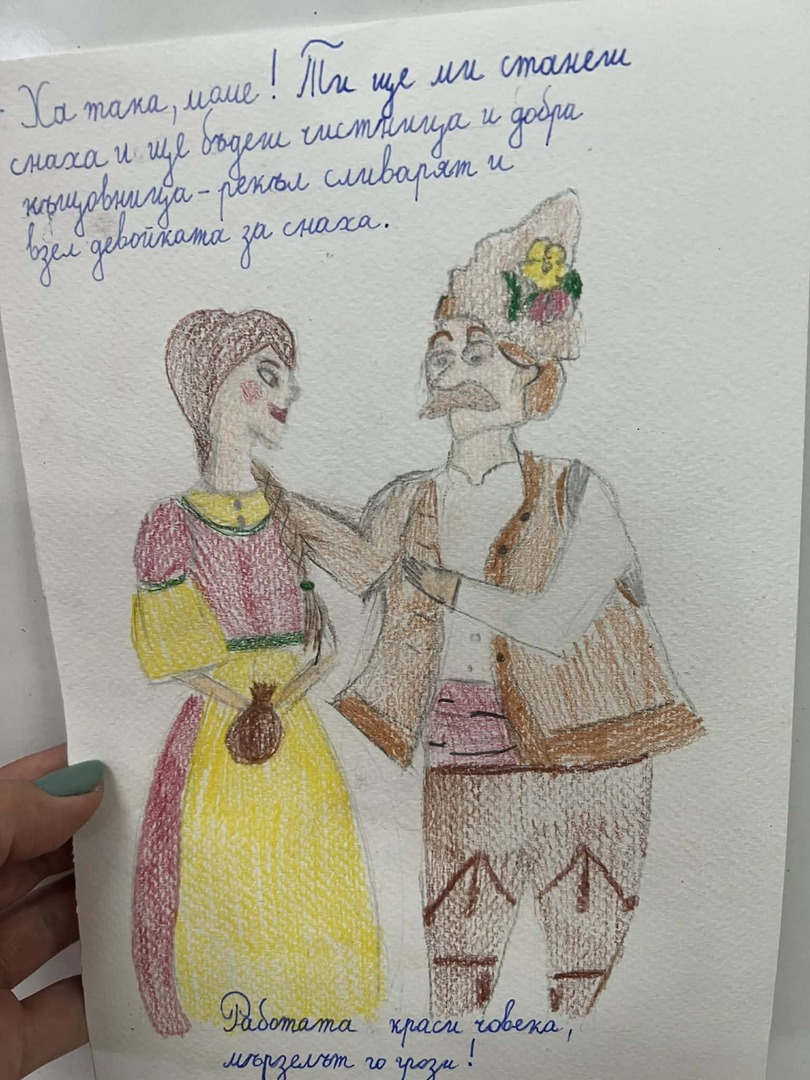 - Ха така, моме! Ти ще ми станеш
снаха и ще бъдеш чистница и добра
къщовница - рекъл сливарят и
взел девойката за снаха.
Работата краси човека,
мързелът го грози!